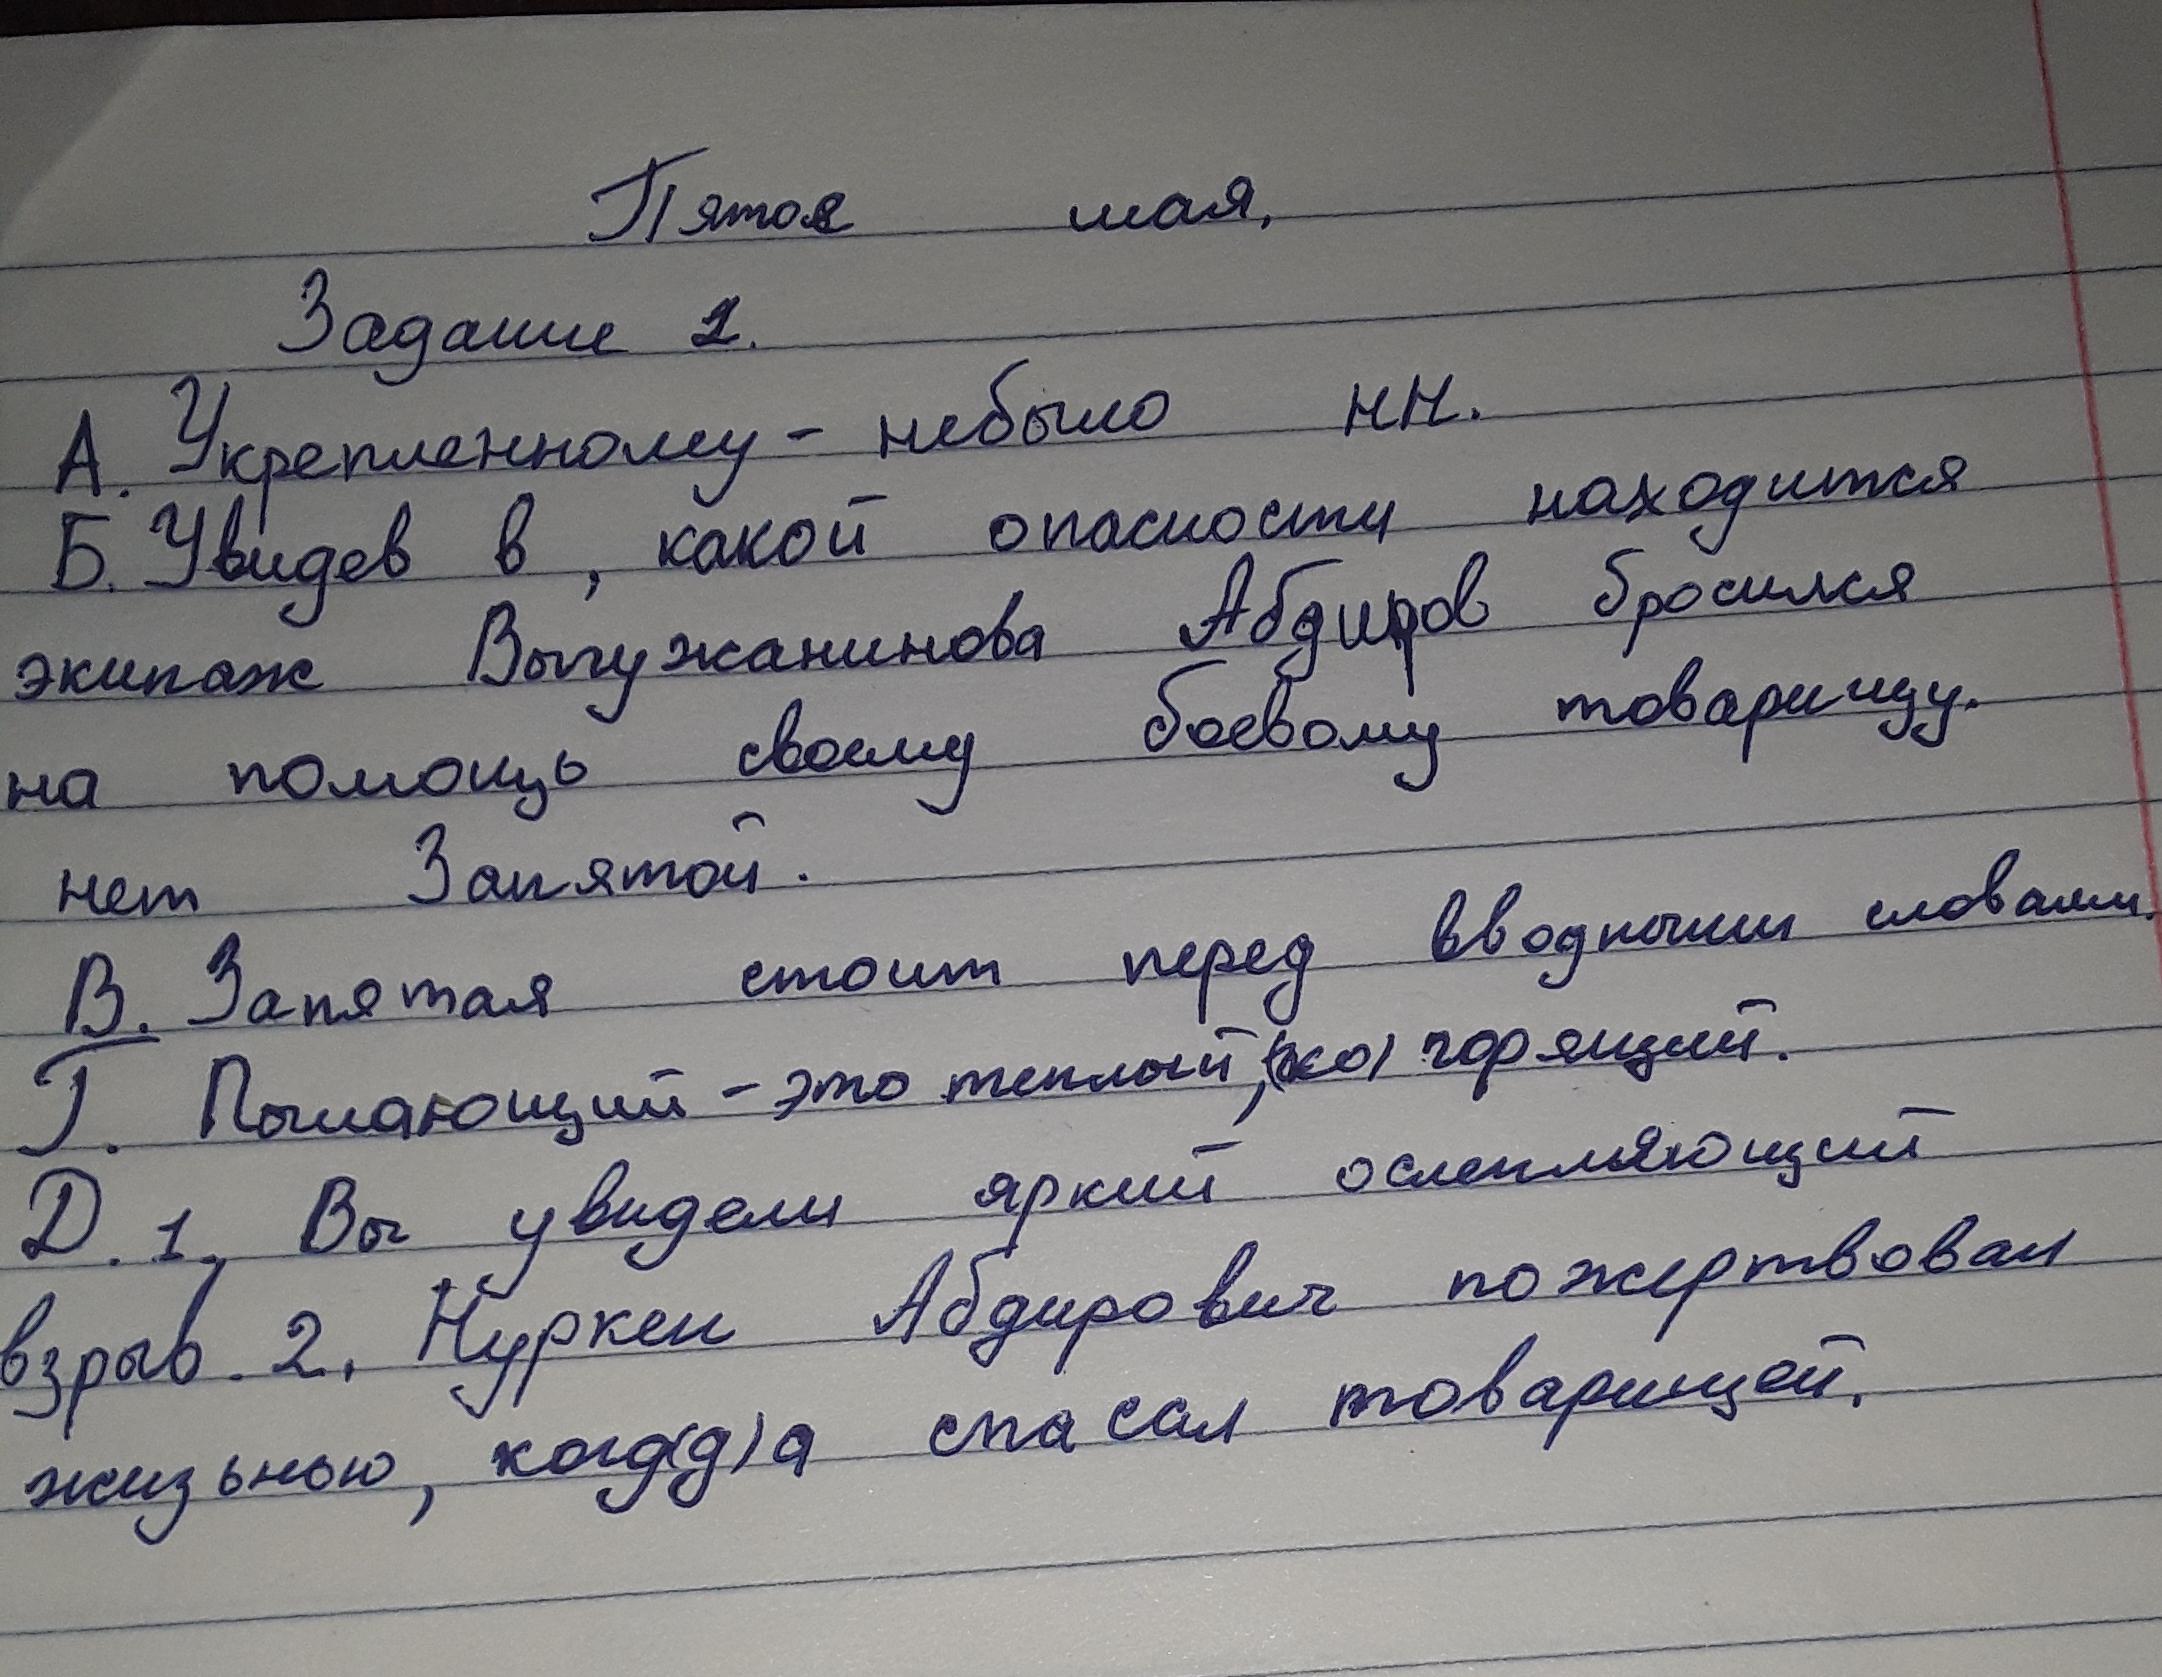 Пятое мая.
Задание 1.
А. Укрепленному - небыло НН.
Б. Увидев в, какой опасности находится
экипаж Выгужанинова Абдиров бросился
на помощь своему боевому товарищу.
нет Запятой.
В. Запятая стоит перед вводными словами.
Г. Пылающий - это теплый, горящий.
Д. 1. Вы увидели яркий ослепляющий
взрыв. 2. Нуркен Абдирович пожертвовал
жизьнью, когд(д)а спасал товарищей.